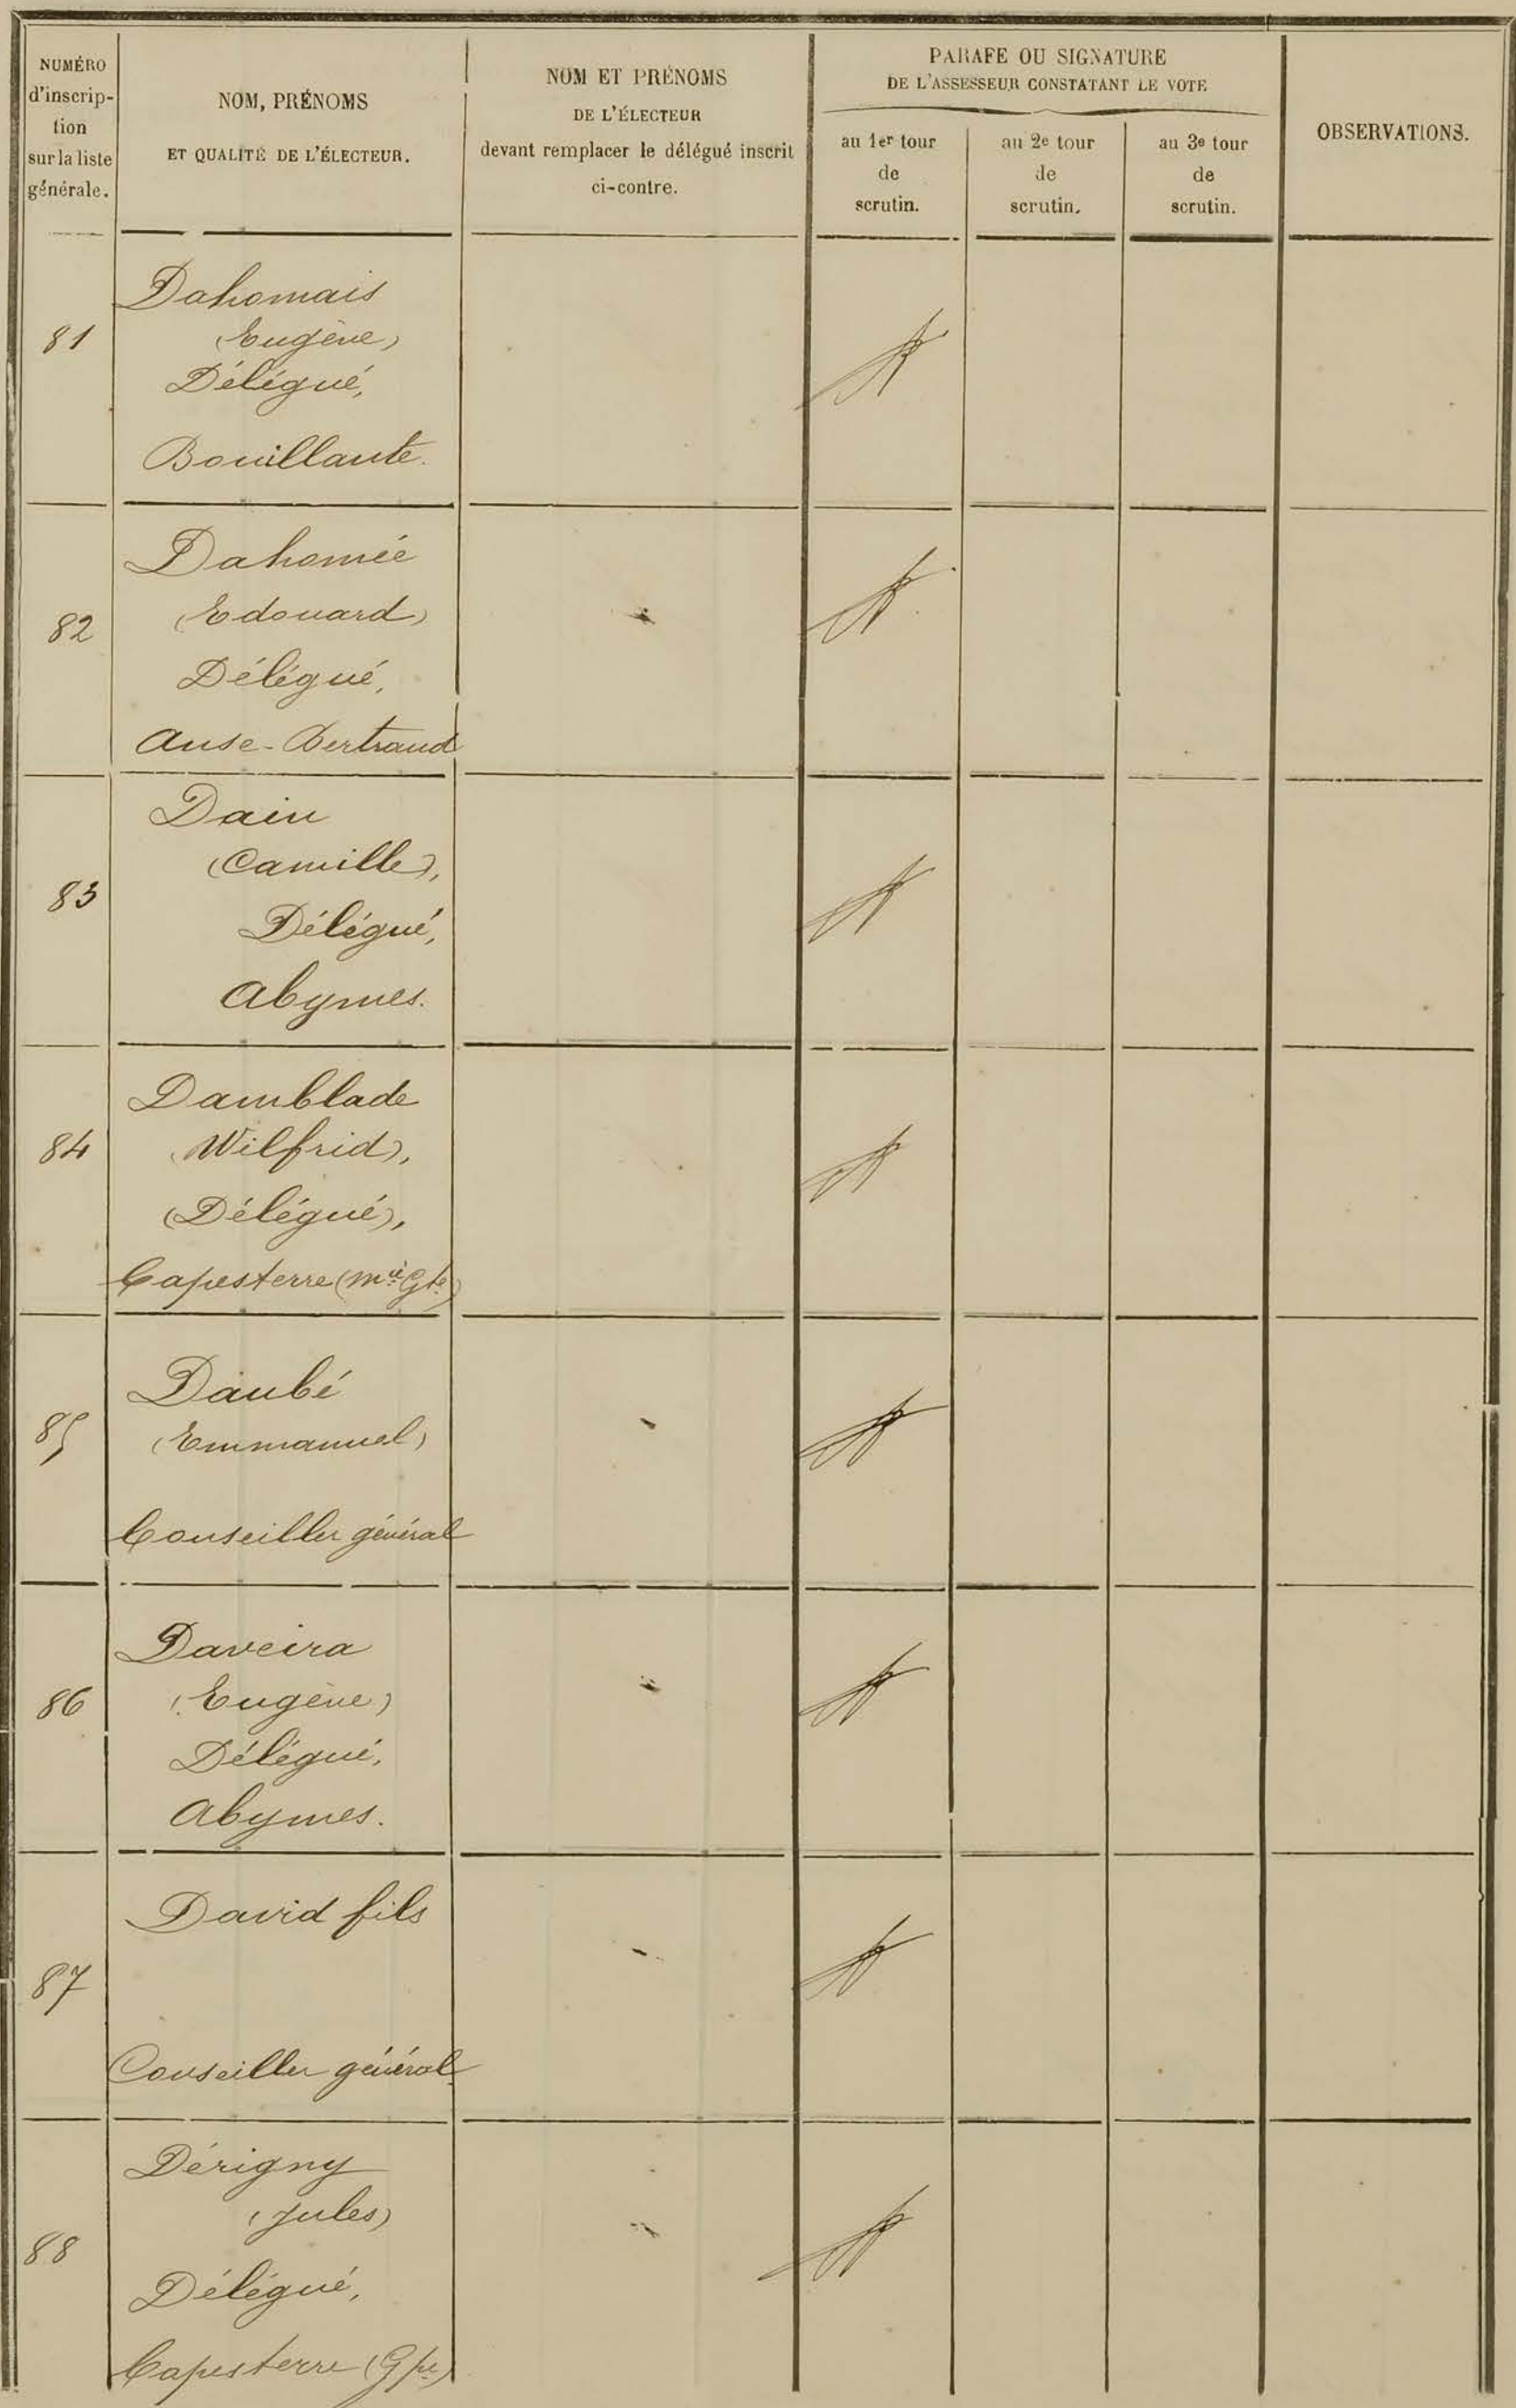 NUMÉRO
d'inscrip-
tion
sur la liste
générale.
NOM, PRÉNOMS
ET QUALITÉ DE L'ÉLECTEUR.
NOM ET PRÉNOMS
DE L'ÉLECTEUR
devant remplacer le délégué inscrit
ci-contre.
PARAFE OU SIGNATURE
DE L'ASSESSEUR CONSTATANT LE VOTE
au 1er tour
de
scrutin.
au 2e tour
de
scrutin.
au 3e tour
de
scrutin.
OBSERVATIONS.
81
Dahomais
(Eugène)
Délégué,
Bouillante.
82
Dahomée
(Edouard)
Délégué,
Anse-Bertrand
83
Dain
(Camille),
Délégué,
Abymes.
84
Damblade
(Wilfrid),
(Délégué),
Capesterre
85
Daubé
(Emmanuel)
Conseiller général
86
Daveira
(Eugène)
Délégué,
Abymes.
87
David fils
Conseiller général
88
Dérigny
(Jules)
Délégué,
Capesterre (Gpe)